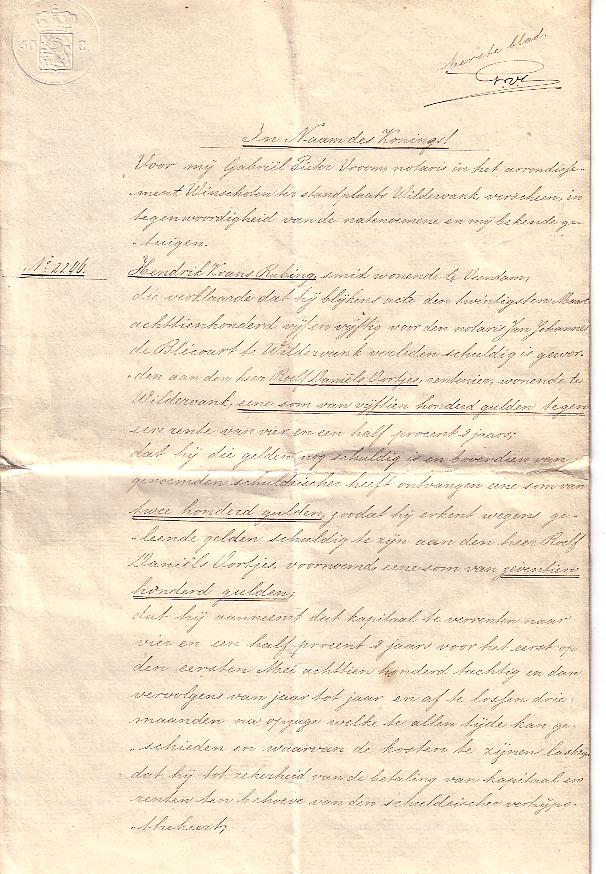 50 C.
eerste blad.
In Naam des Konings!
Voor mij Gabriël Pieter Vroom, notaris in het arrondisse-
-ment Winschoten ter standplaats Wildervank verscheen, in
tegenwoordigheid van de natenoemene en mij bekende ge-
-tuigen.
No. 2246.
Hendrik Frans Rubing, smid wonende te Veendam;
die verklaarde dat hij blijkens acte den twintigsten Maart
achttienhonderd vijf en vijftig voor den notaris Jan Johannes
de Blécourt te Wildervank verleden schuldig is gewor-
-den aan den heer Roelf Daniëls Oortjes, rentenier, wonende te
Wildervank, eene som van vijftien honderd gulden tegen
eene rente van vier en een half procent 's jaars;
dat hij die gelden nog schuldig is en bovendien van
genoemden schuldeischer heeft ontvangen eene som van
twee honderd gulden, zoodat hij erkent wegens ge-
-leende gelden schuldig te zijn aan den heer Roelf
Daniëls Oortjes, voornoemd, eene som van zeventien
honderd gulden;
dat hij aanneemt dat kapitaal te verrenten naar
vier en een half procent 's jaars voor het eerst op
den eersten Mei achttien honderd tachtig en dan
vervolgens van jaar tot jaar en af te lossen drie
maanden na opzage welke te allen tijde kan ge-
-schieden en waarvan de kosten te zijnen laste
dat hij tot zekerheid van de betaling van kapitaal en
renten ten behoeve van den schuldeischer verhypo-
-thekeert;